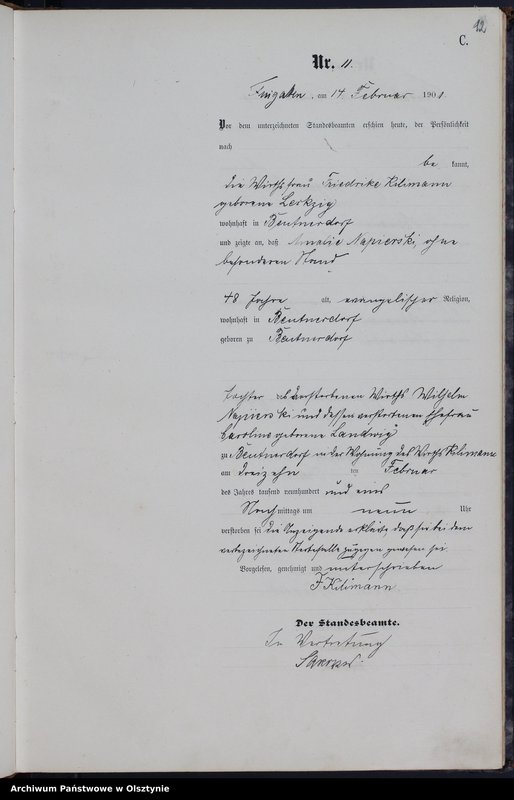 12
C.
Nr. 11.
am 14 Februar 1901.
Vor dem unterzeichneten Standesbeamten erschien heute, der Persönlichkeit
nach
be kannt,
die Wirthsfrau Friedrike Kilimann
geborene
wohnhaft in Beutnerdorf
und zeigte an, daß Amalie Napierski, ohne
besonderen Stand
48 Jahre alt, evangelischer Religion,
wohnhaft in Beutnerdorf
geboren zu Beutnerdorf
Tochter des verstorbenen Wirths Wilhelm
Napierski und dessen verstorbenen Ehefrau
Caroline geborene Landwig
zu Beutnerdorf in der Wohnung des Wirths Kilimann
am dreizehn ten Februar
des Jahres tausend neunhundert und eins
Nach mittags um neun Uhr
verstorben sei die Anzeigende erklärte, daß sie bei dem
vorbezeichneten Sterbefalle zugegen gewesen sei
Vorgelesen, genehmigt und unterschrieben
F Kilimann
Der Standesbeamte.
In Vertretung
Archiwum Państwowe w Olsztynie